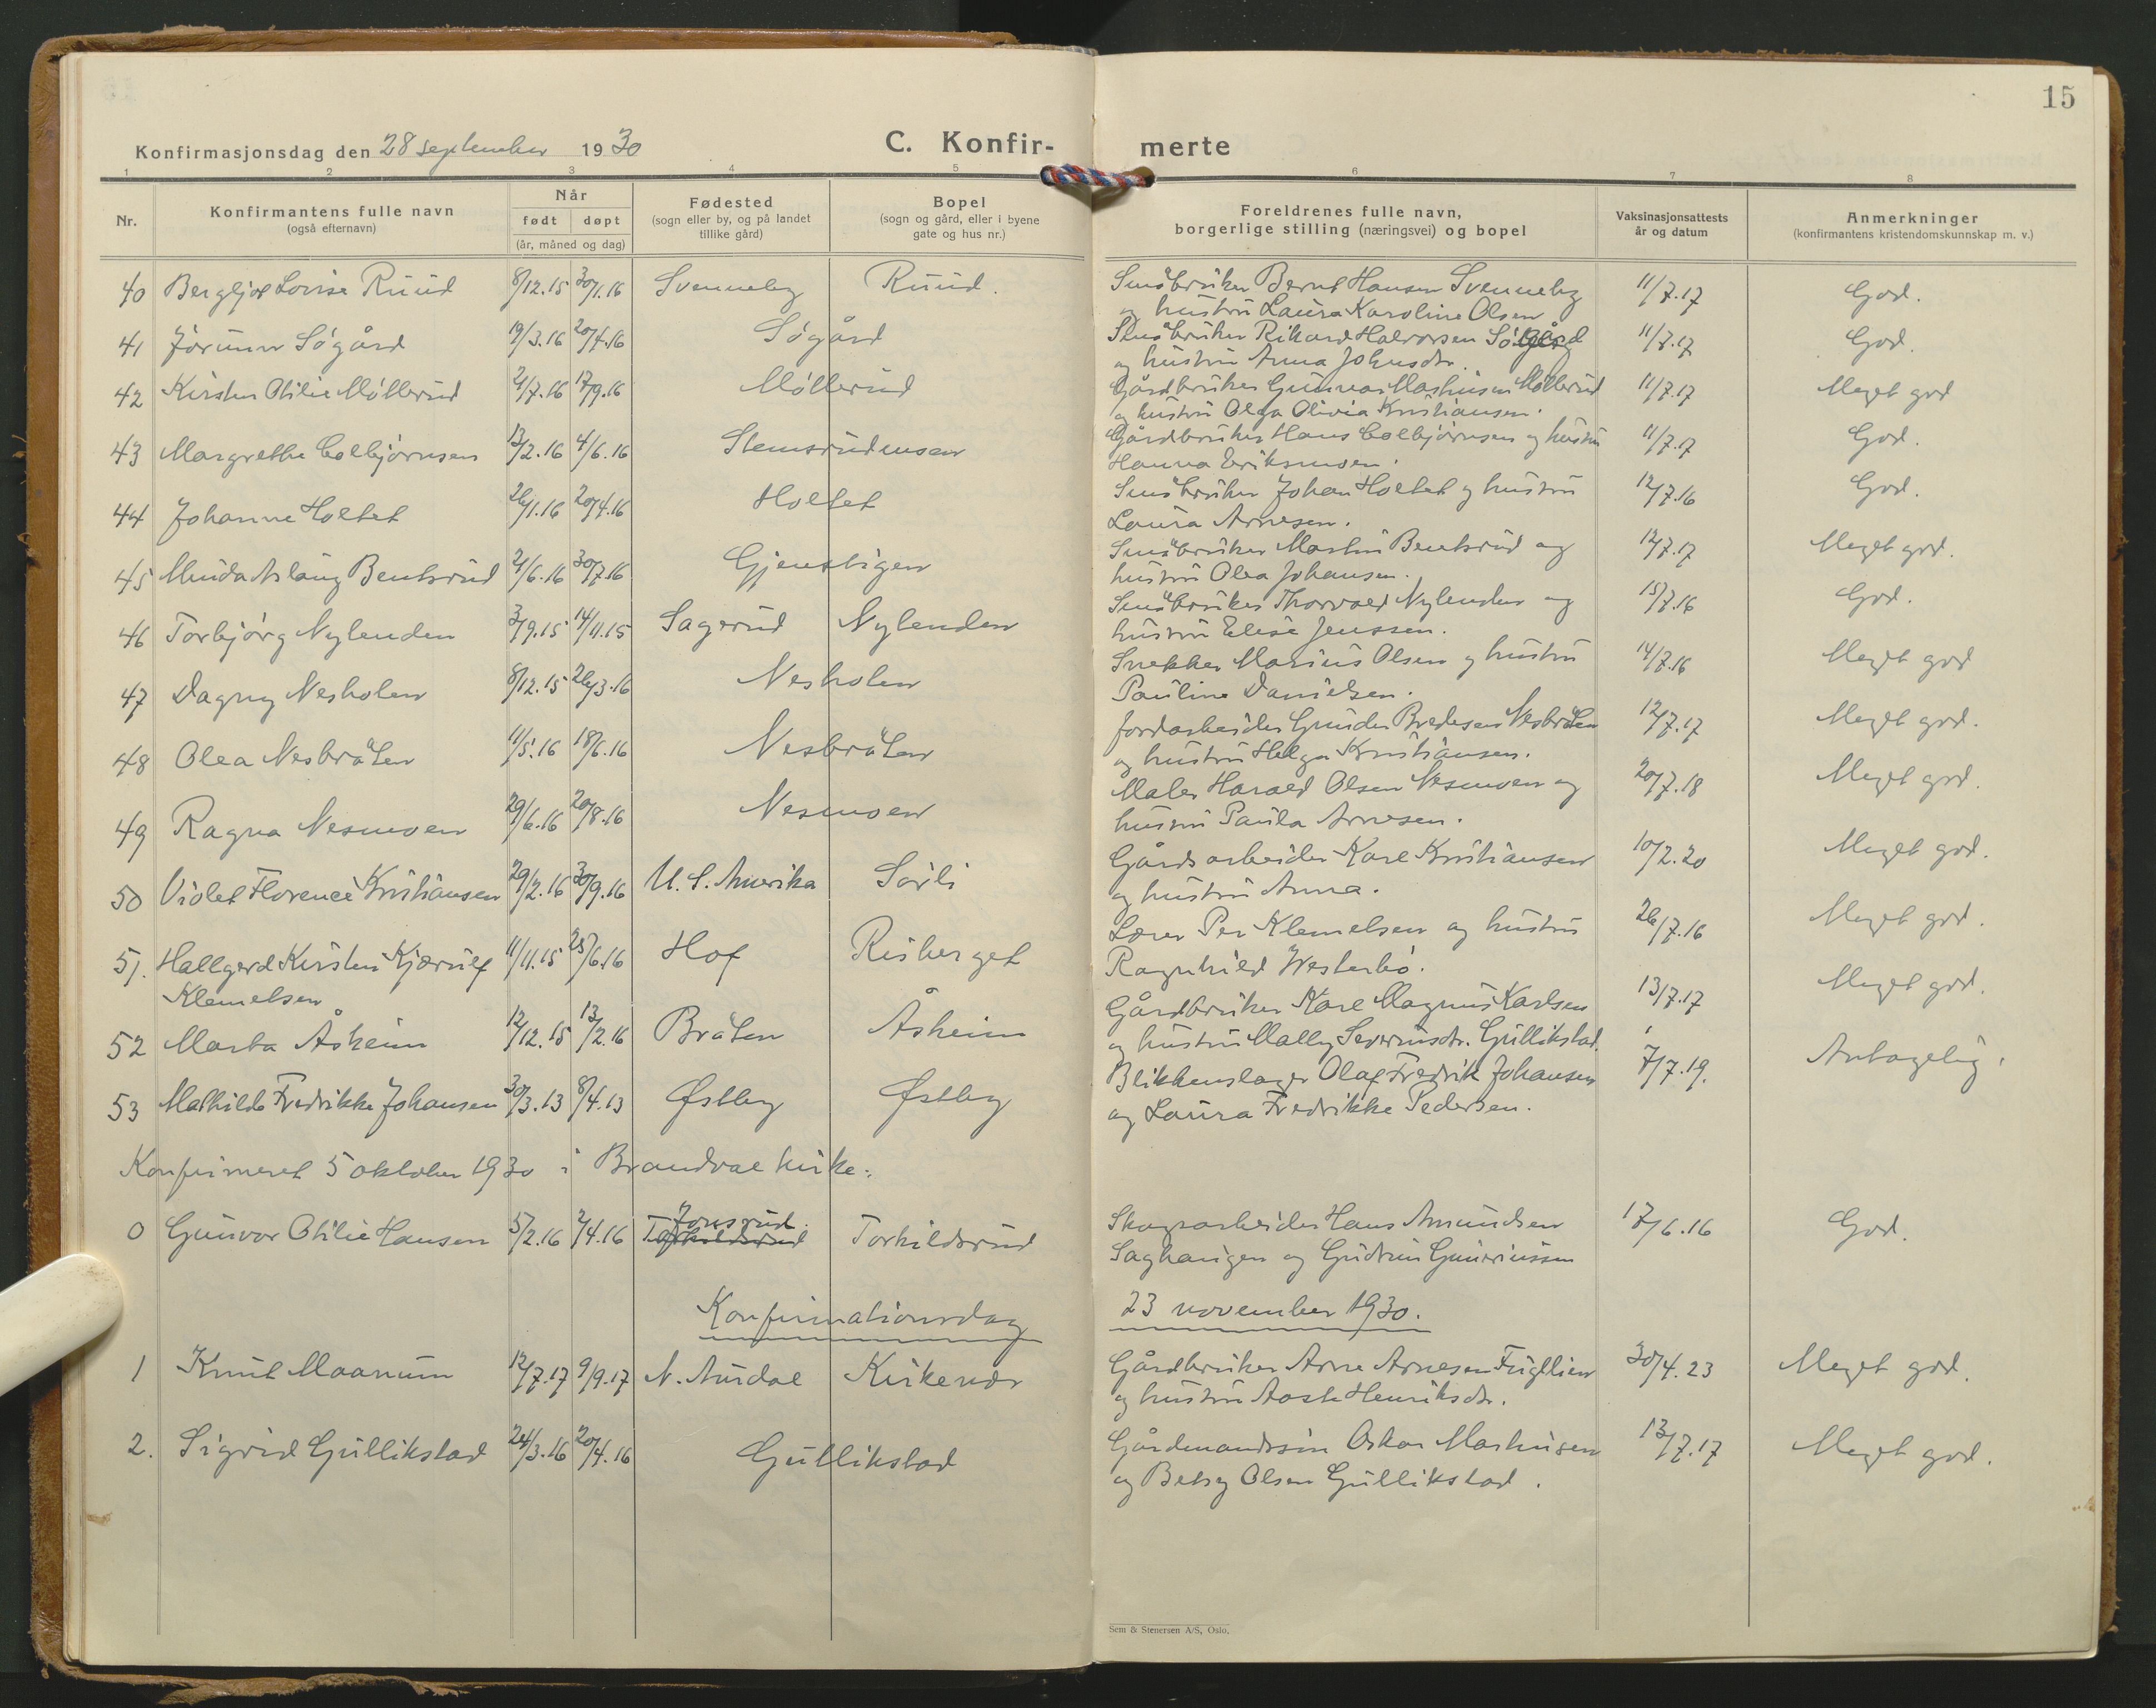 15
Konfirmasjonsdag den 28 september 1930
C. Konfir-merte
1 2 3 4 5 6 7 8
Nr.
Konfirmantens fulle navn
(også efternavn)
Når
født døpt
(år, måned og dag)
Fødested
(sogn eller by, og på landet
tillike gård)
Bopel
(sogn og gård, eller i byene
gate og hus nr.)
Foreldrenes fulle navn,
borgerlige stilling (næringsvei) og bopel
Vaksinasjonsattests
år og datum
Anmerkninger
(konfirmantens kristendomskunnskap m. v.)
40 Bergljot Lovise Ruud 8/12.15 30/1.16 Svenneby Ruud. Småbruker Bernt Hansen Svenneby 11/7.17 God.
og hustru Laura Karoline Olsen
41 Jorunn Søgård 19/3.16 20/4.16 Søgård Småbruker Rikard Halvorsen Søgård 11/7.17 God.
og hustru Anna Johnsdtr.
42 Kirsten Otilie Møllerud 21/7.16 17/9.16 Møllerud Gårdbruker Gunnar Mathisen Møllerud 11/7.17 Meget god
og hustru Olga Olivia Kristiansen.
43 Margrethe Colbjørnsen 13/2.16 4/6.16 Stemsrudmoen Gårdbruker Hans Colbjørnsen og hustru 11/7.17 God.
Hanna Eriksmoen.
44 Johanne Holtet 26/1.16 20/4.16 Holtet Småbruker Johan Holtet og hustru 12/7.16 God.
Laura Arnesen.
45 Minda Aslaug Bentsrud 21/6.16 30/7.16 Gjenstigen Småbruker Martin Bentsrud og 12/7.17 Meget god.
hustru Olea Johansen.
46 Torbjørg Nylenden 3/9.15 14/11.15 Sagerud Nylenden Småbruker Thorvald Nylenden og 15/7.16 God.
hustru Elise Jenssen.
47 Dagny Nesholen 8/12.15 26/3.16 Nesholen Snekker Marius Olsen og hustru 14/7.16 Meget god
Pauline Danielsen.
48 Olea Nesbråten 11/5.16 18/6.16 Nesbråten Jordarbeider Gunder Bredesen Nesbråten 12/7.17 Meget god.
og hustru Helga Kristiansen.
49 Ragna Nesmoen 29/6.16 20/8.16 Nesmoen Maler Harald Olsen Nesmoen og 20/7.18 Meget god.
hustru Paula Arnesen.
50 Violet Florence Kristiansen 29/2.16 30/9.16 U.S. Amerika Sørli Gårdsarbeider Karl Kristiansen 10/2.20 Meget god.
og hustru Anna.
51. Hallgerd Kirsten Kjærulf 11/11.15 25/6.16 Hof Risberget Lærer Per Klemetsen og hustru 26/7.16 Meget god.
Klemetsen Ragnhild Westerbø.
52 Marta Åsheim 12/12.15 13/2.16 Bråten Åsheim Gårdbruker Karl Magnus Karlsen 13/7.17 Meget god.
og hustru Mally Severinsdtr. Gullikstad.
53 Mathilde Fredrikke Johansen 30/3.13 8/4.13 Østby Østby Blikkenslager Olaf Fredrik Johansen 7/7.19. Antagelig.
og Laura Fredrikke Pedersen.
Konfirmeret 5 oktober 1930 i Brandval kirke:
0 Gunvor Otilie Hansen 5/2.16 2/4.16 Jonsrud. Torkildsrud Torkildsrud Skogsarbeider Hans Amundsen 17/6.16 God.
Saghaugen og Gudrun Guneriussen
Konfirmationsdag 23 november 1930.
1 Knut Maanum 12/7.17 9/9.17 N. Aurdal Kirkenær Gårdbruker Arne Arnesen Fuglien 30/4.23 Meget god.
og hustru Aaste Henriksdtr.
2. Sigrid Gullikstad 24/3.16 20/4.16 Gullikstad Gårdmandssøn Oskar Mathisen 13/7.17 Meget god.
og Betsy Olsen Gullikstad.
Sem & Stenersen A/S, Oslo.